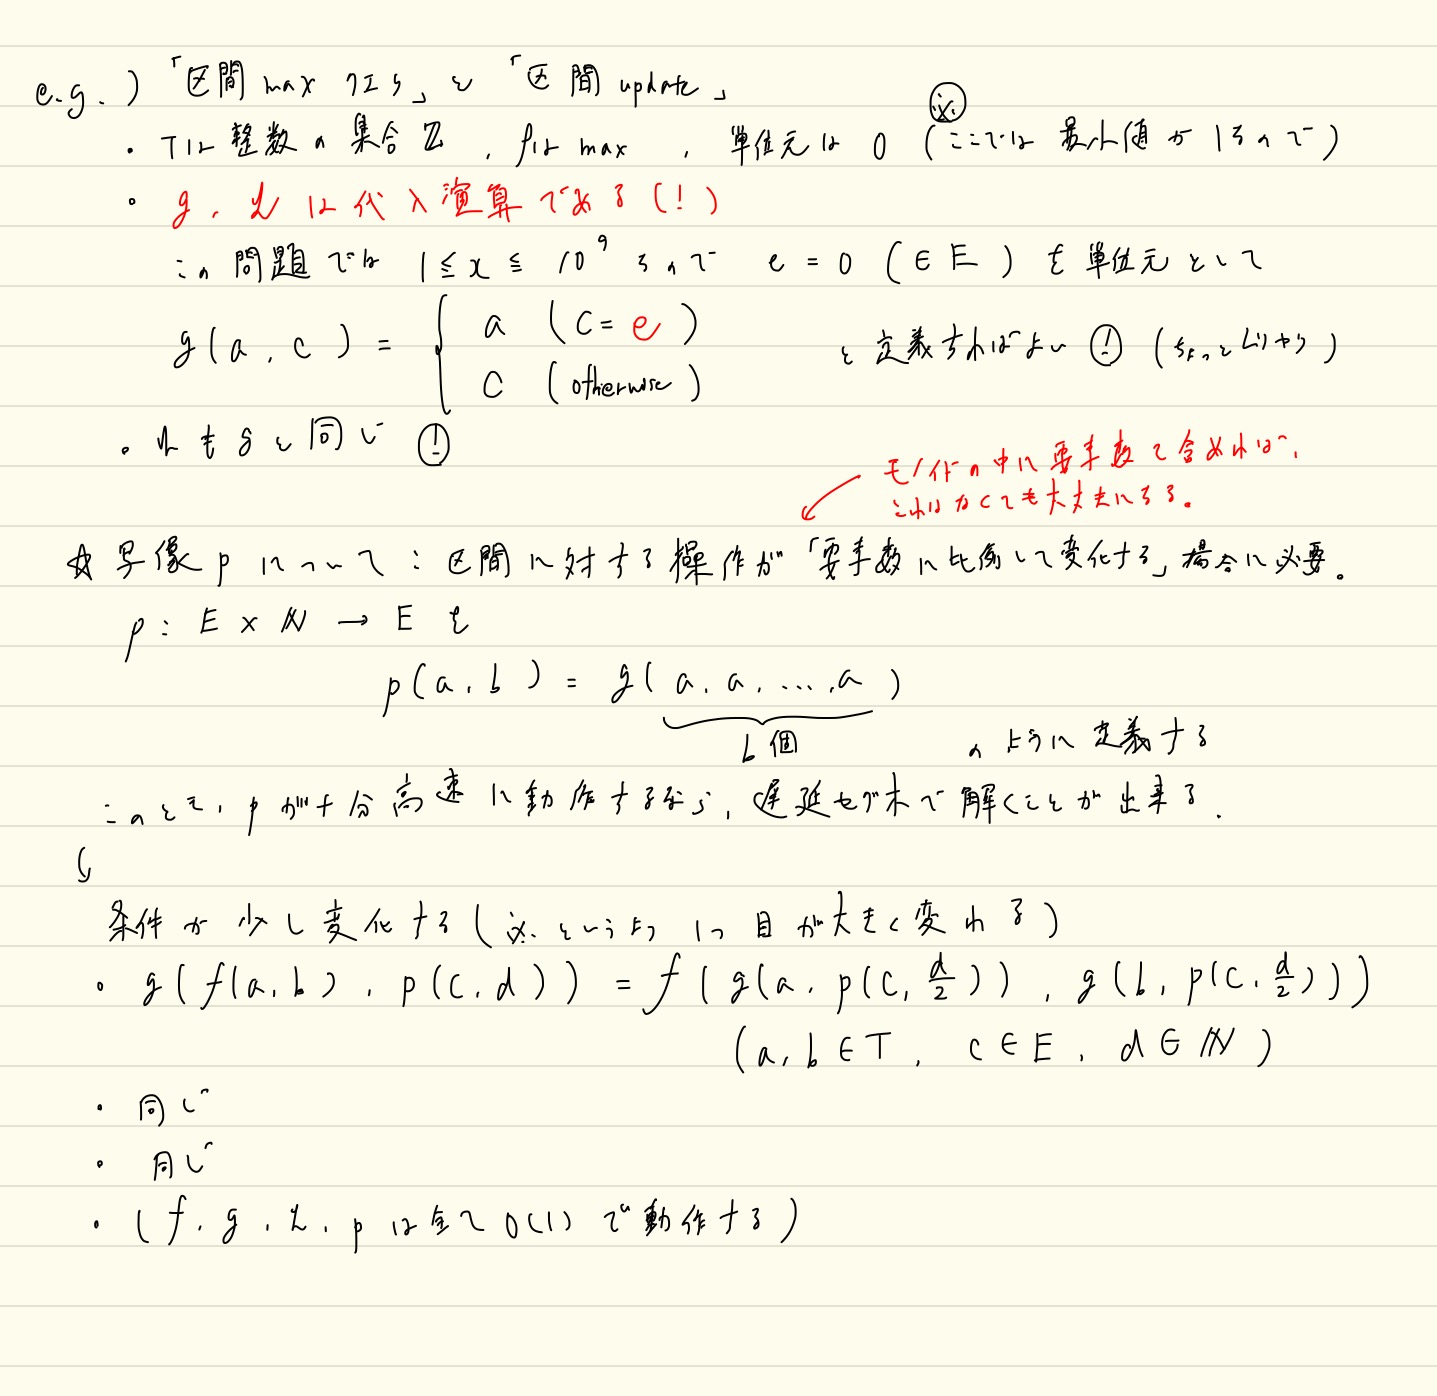 e.g.) 「区間 max クエリ」と「区間 update」
・Tは整数の集合 ℤ, fは max, 単位元は 0 (ここでは最小値が1なので) ※
・g, h は代入演算である(!)
この問題では 1≦x≦10^9 なので e=0 (∈E) を単位元として
g(a, c) = { a (c=e) c (otherwise) と定義すればよい ! (ちょっとムリやり)
・hもgと同じ !
モノイドの中に要素数も含めれば、
これはなくても大丈夫になる。
☆写像pについて:区間に対する操作が「要素数に比例して変化する」場合に必要。
p: E × ℕ → E を
p(a, b) = g(a, a, ..., a)
b個 のように定義する
このとき, pが十分高速に動作するなら, 遅延セグ木で解くことが出来る.
条件が少し変化する(※というより 1つ目が大きく変わる)
・g(f(a, b), p(c, d)) = f(g(a, p(c, d/2)), g(b, p(c, d/2)))
(a, b∈T, c∈E, d∈ℕ)
・同じ
・同じ
・(f, g, h, p は全て O(1) で動作する)